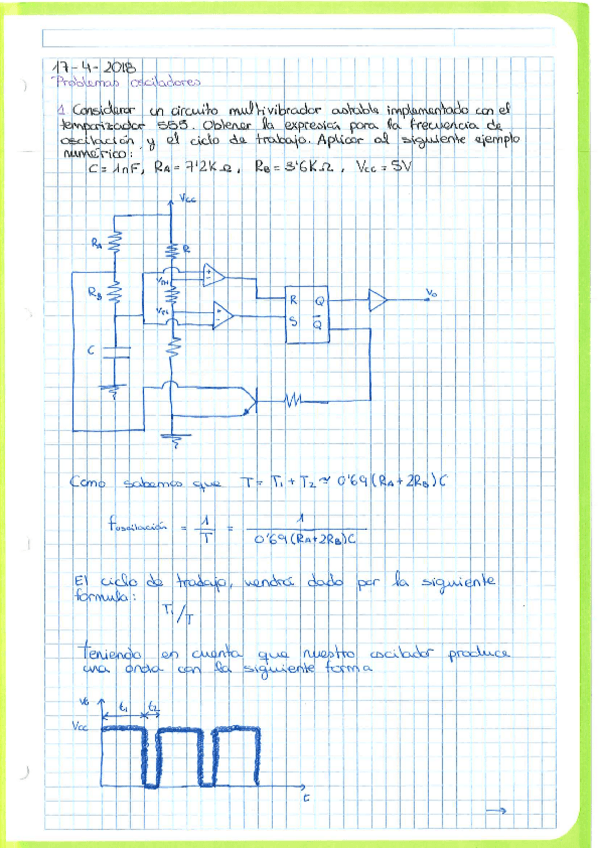 17-4-2018
Problemas osciladores
1 Considerar un circuito multivibrador astable implementado con el
temporizador 555. Obtener la expresión para la frecuencia de
oscilación y el ciclo de trabajo. Aplicar al siguiente ejemplo
numérico:
C = 1nF, RA = 7'2KΩ, RB = 3'6KΩ, Vcc = 5V
Vcc
RA
R
RB
VTH
VTL
C
R Q
S Q̅
Vo
Como sabemos que T = T1 + T2 ≈ 0'69(RA+2RB)C
foscilación = 1/T = 1/0'69(RA+2RB)C
El ciclo de trabajo, vendrá dado por la siguiente
fórmula:
T1/T
Teniendo en cuenta que nuestro oscilador produce
una onda con la siguiente forma
Vo
t1 t2
Vcc
t
→